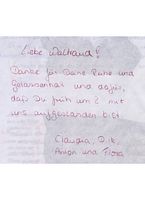 Liebe Waltraud!
Danke für Deine Ruhe und
Gelassenheit und dafür,
daß Du früh um 2 mit
uns aufgestanden bist
Claudia, Dirk,
Anton und Flora